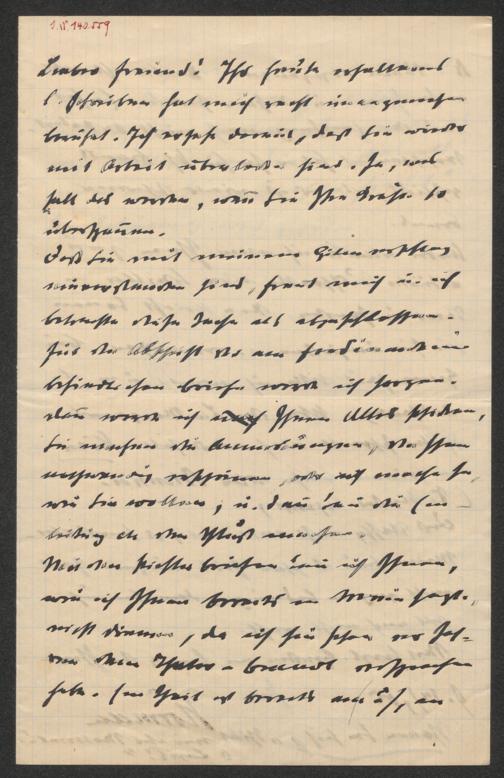 J.N. 140.559
Lieber Freund! Ihr heute erhaltenes
l. Schreiben hat mich recht unangenehm
berührt. Ich ersehe daraus, daß Sie wieder
mit Arbeit überladen sind. Ja, was
soll das werden, wenn Sie Ihre Kräfte so
überspannen.
Daß Sie mit meinem
einverstanden sind, freut mich u. ich
betrachte diese Sache als abgeschlossen.
Für die Abschrift der am Ferdinandeum
befindlichen Briefe werde ich sorgen.
Dann werde ich Ihnen Alles schicken,
Sie machen die Anmerkungen, die Ihnen
nothwendig erscheinen, oder ich mache sie,
wie Sie wollen, u. dann kann die Ein-
leitung als den Schluß machen.
Mit den Pichler briefen kann ich Ihnen,
wie ich Ihnen bereits in Wien sagte,
nicht dienen, da ich sie schon vor Jah-
ren dem versprochen
habe. Ein Theil ist bereits an